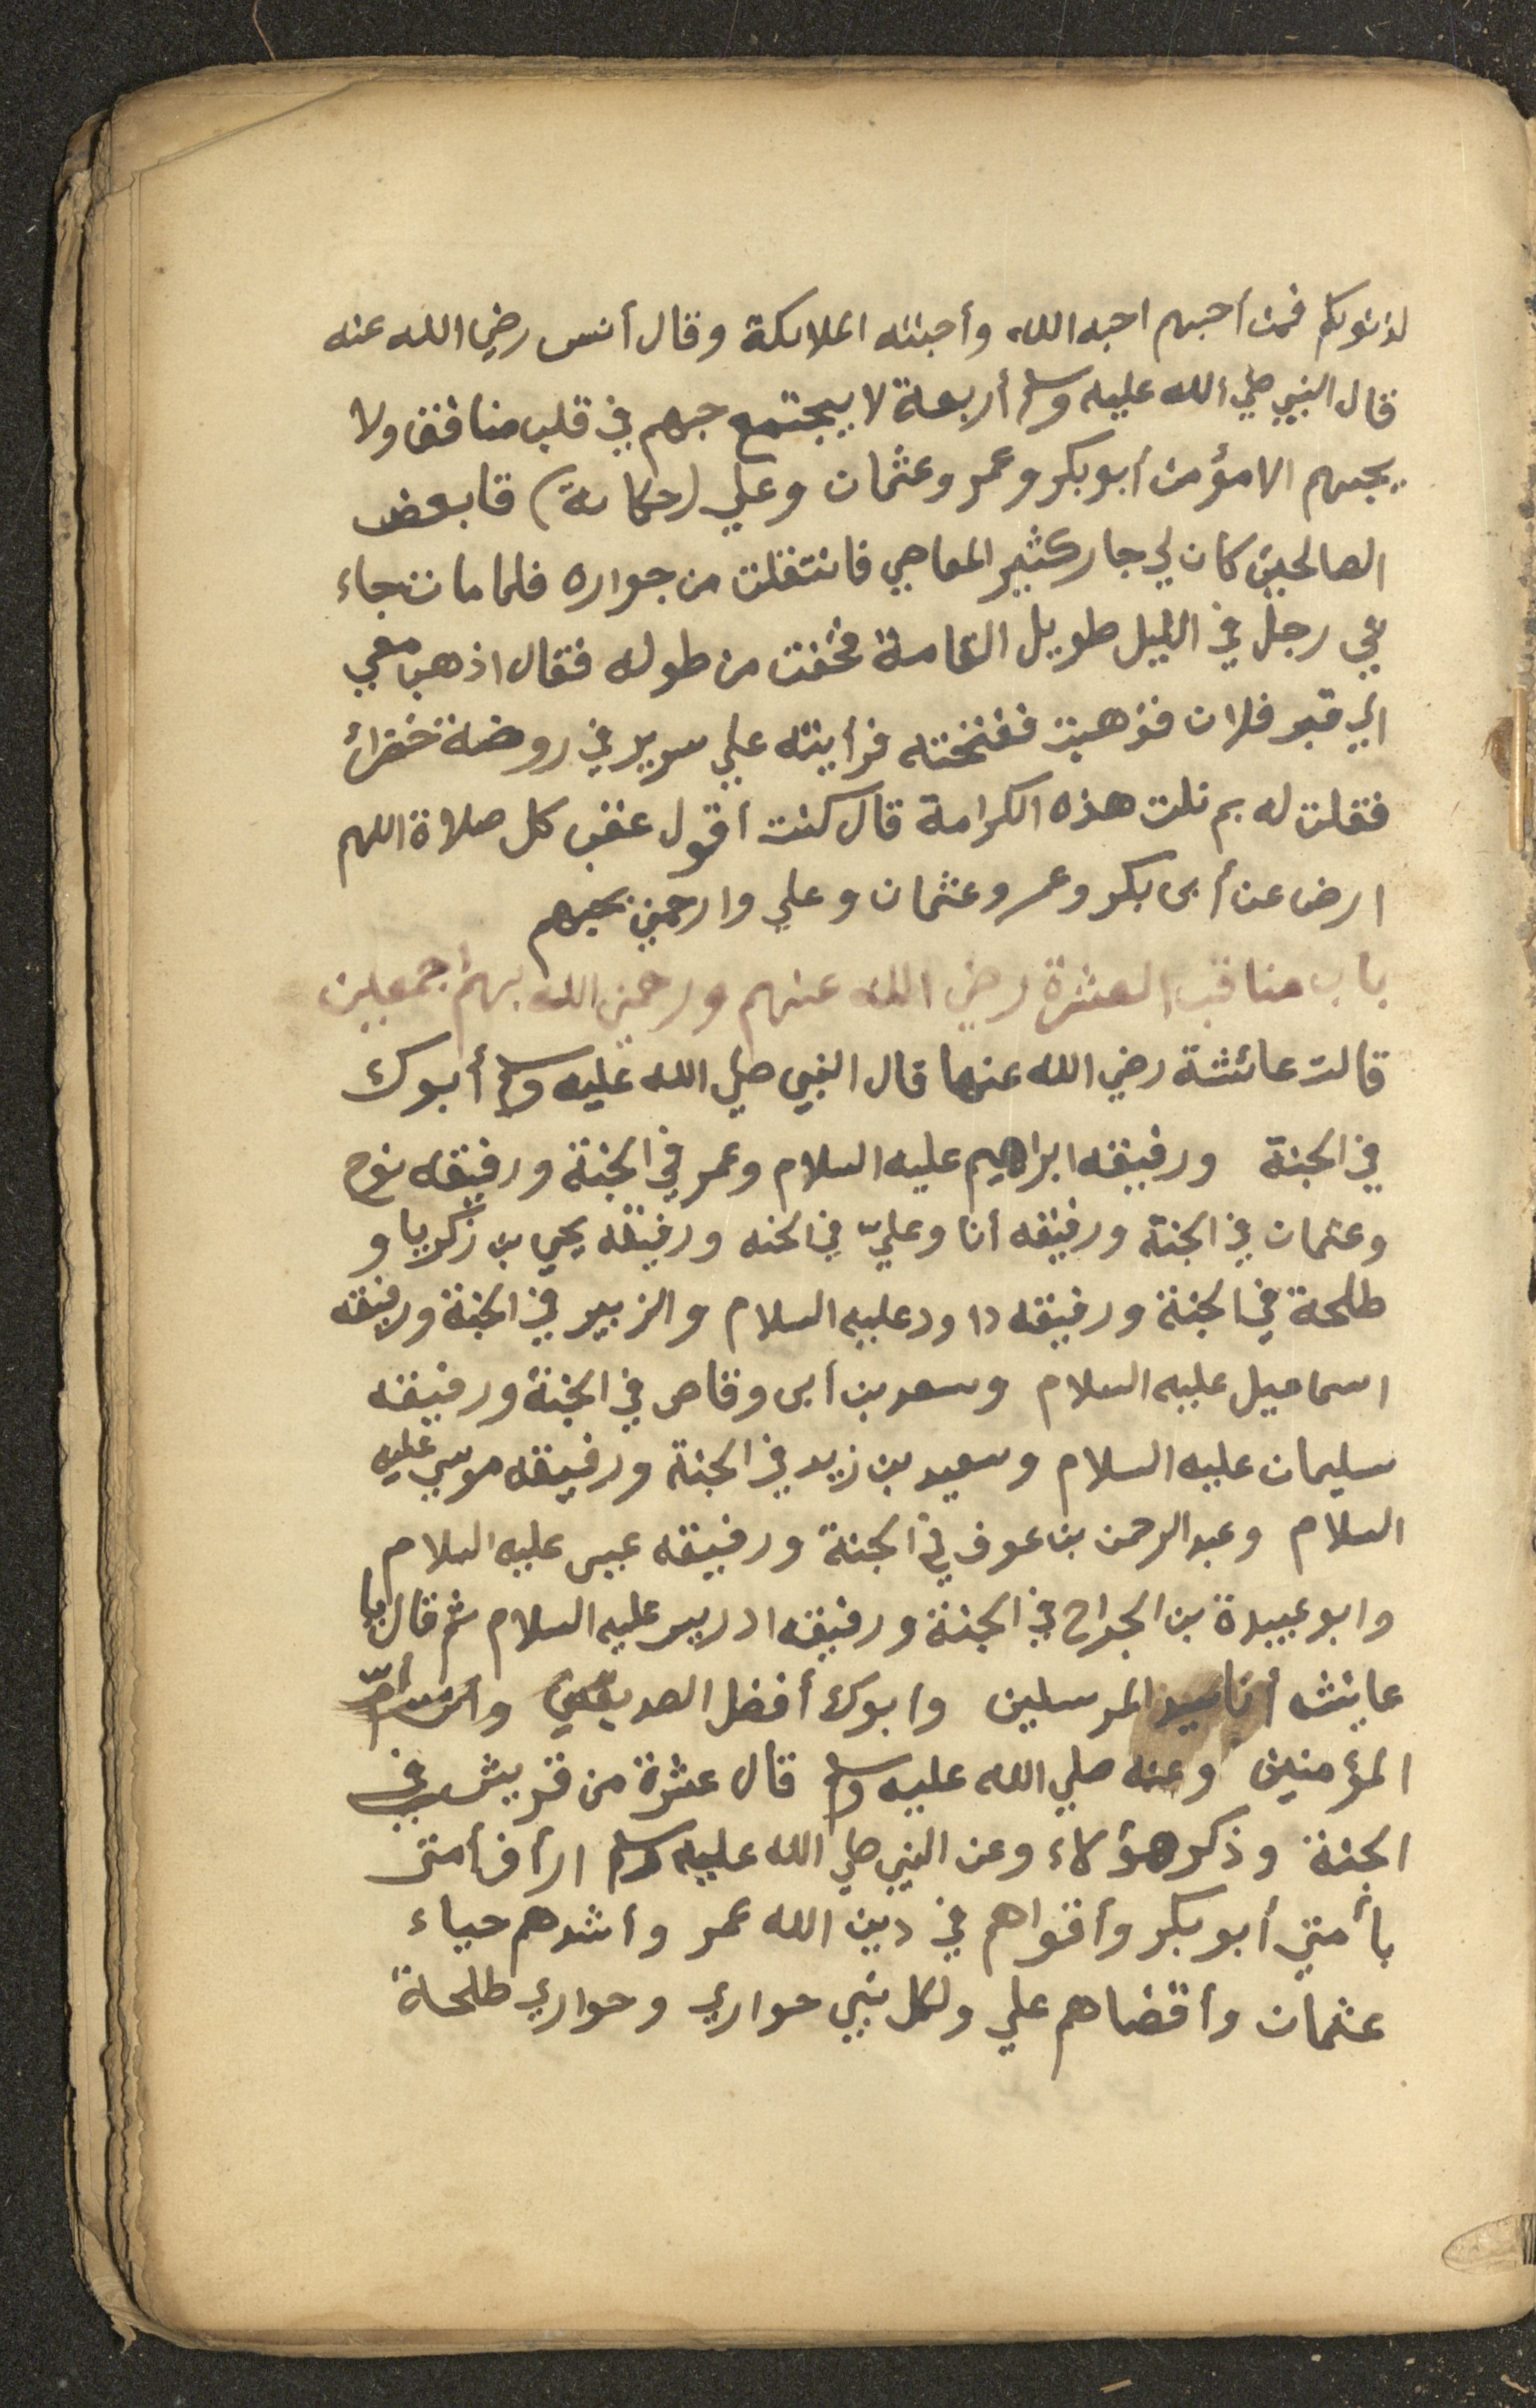 لذنوبكم فمن أحبهم احبه الله وأحبته الملائكة وقال أنس رضي الله عنه
قال النبي صلي الله عليه وسلم أربعة لا يجتمع حبهم في قلب منافق ولا
يحبهم الامؤمن أبو بكر وعمر وعثمان وعلي (حكاية) قا بعض
الصالحين كان لي جار كثير المعاصي فانتقلت من جواره فلما مات جاء
ني رجل في الليل طويل القامة فخفت من طوله فقال اذهب معي
الي قبر فلان فذهبت ففتحته فرأيته علي سرير في روضة خضرائ
فقلت له بم نلت هذه الكرامة قال كنت أقول عقب كل صلاة اللهم
ارض عن أبى بكر وعمر وعثمان وعلي وارحمني بحبهم
باب مناقب العشرة رضي الله عنهم ورحمني الله بهم اجمعين
قالت عائشة رضي الله عنها قال النبي صلي الله عليه وسلم أبوك
في الجنة ورفيقه ابراهيم عليه السلام وعمر في الجنة ورفيقه نوح
وعثمان في الجنة ورفيقه أنا وعليّ في الجنه ورفيقه يحي بن زكريا و
طلحة في الجنة ورفيقه داود عليه السلام والزبير في الجنة ورفيقه
اسماعيل عليه السلام وسعد بن أبى وقاص في الجنة ورفيقه
سليمان عليه السلام وسعيد بن زيد في الجنة ورفيقه موسي عليه
السلام وعبد الرحمن بن عوف في الجنة ورفيقه عيسى عليه السلام
وابو عبيدة بن الجراح في الجنة ورفيقه ادريس عليه السلام ثم قال يا
عايشه أنا سيد المرسلين وابوك أفضل الصديقين وأنت أمّ
المؤمنين وعنه صلي الله عليه وسلم قال عشرة من قريش في
الجنة وذكر هؤلاء وعن النبي صلي الله عليه وسلم ارأف أمتى
بأمتي أبو بكر وأقواهم في دين الله عمر وأشدهم حياء
عثمان وأقضاهم علي ولكل نبي حواري وحواري طلحة